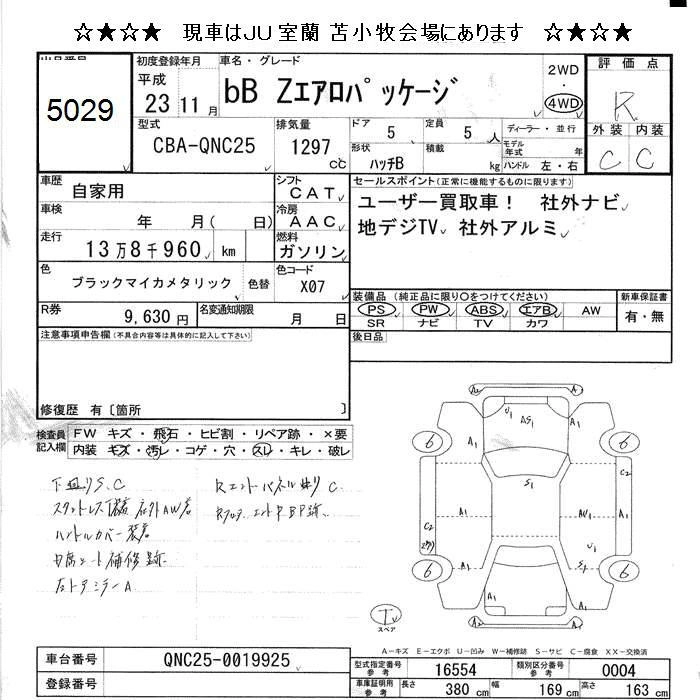 ☆★☆★ 現車はJU 室蘭 苫小牧会場にあります ☆★☆★
出品番号
5029
初度登録年月
平成
23 11 月
車名・グレード
bB Zエアロパッケージ
2WD
・
4WD
評価点
R
外装 内装
C C
型式
CBA-QNC25
排気量
1297
cc
ドア
5
定員
5 人
形状
ハッチB
積載
kg
ディーラー・並行
モデル年式 年
ハンドル 左・右
車歴
自家用
シフト
CAT
車検
年 月( 日)
冷房
AAC
走行
13万8千960 km
燃料
ガソリン
色
ブラックマイカメタリック
色替
色コード
X07
R券
9,630 円
名変通知期限
月 日
セールスポイント(正常に機能するものに限ります)
ユーザー買取車! 社外ナビ
地デジTV 社外アルミ
装備品 (純正品に限り○をつけてください)
PS PW ABS エアB AW
SR ナビ TV カワ
新車保証書
有・無
後日品
注意事項申告欄(不具合内容等は具体的に記入して下さい)
修復歴 有〔箇所 〕
検査員記入欄
FW キズ・飛石・ヒビ割・リペア跡・×要
内装 キズ・汚レ・コゲ・穴・スレ・キレ・破レ
下廻りS.C
スタットレス1装着 社外AW有
ハントルカバー装着
内席シート補修跡
左トアミラーA
A1
A1
U1
AS1
A1
A1
6
6
C2
A1
S1
C2
A1
AU1
A1
U1
6
A1
S1
A1
6
A1
A1
T
スペア
A-キズ E-エクボ U-凹み W-補修跡 S-サビ C-腐食 XX-交換済
車台番号
QNC25-0019925
登録番号
型式指定番号
参考
16554
類別区分番号
参考
0004
車庫証明用
参考
長さ
380 cm
幅
169 cm
高さ
163 cm